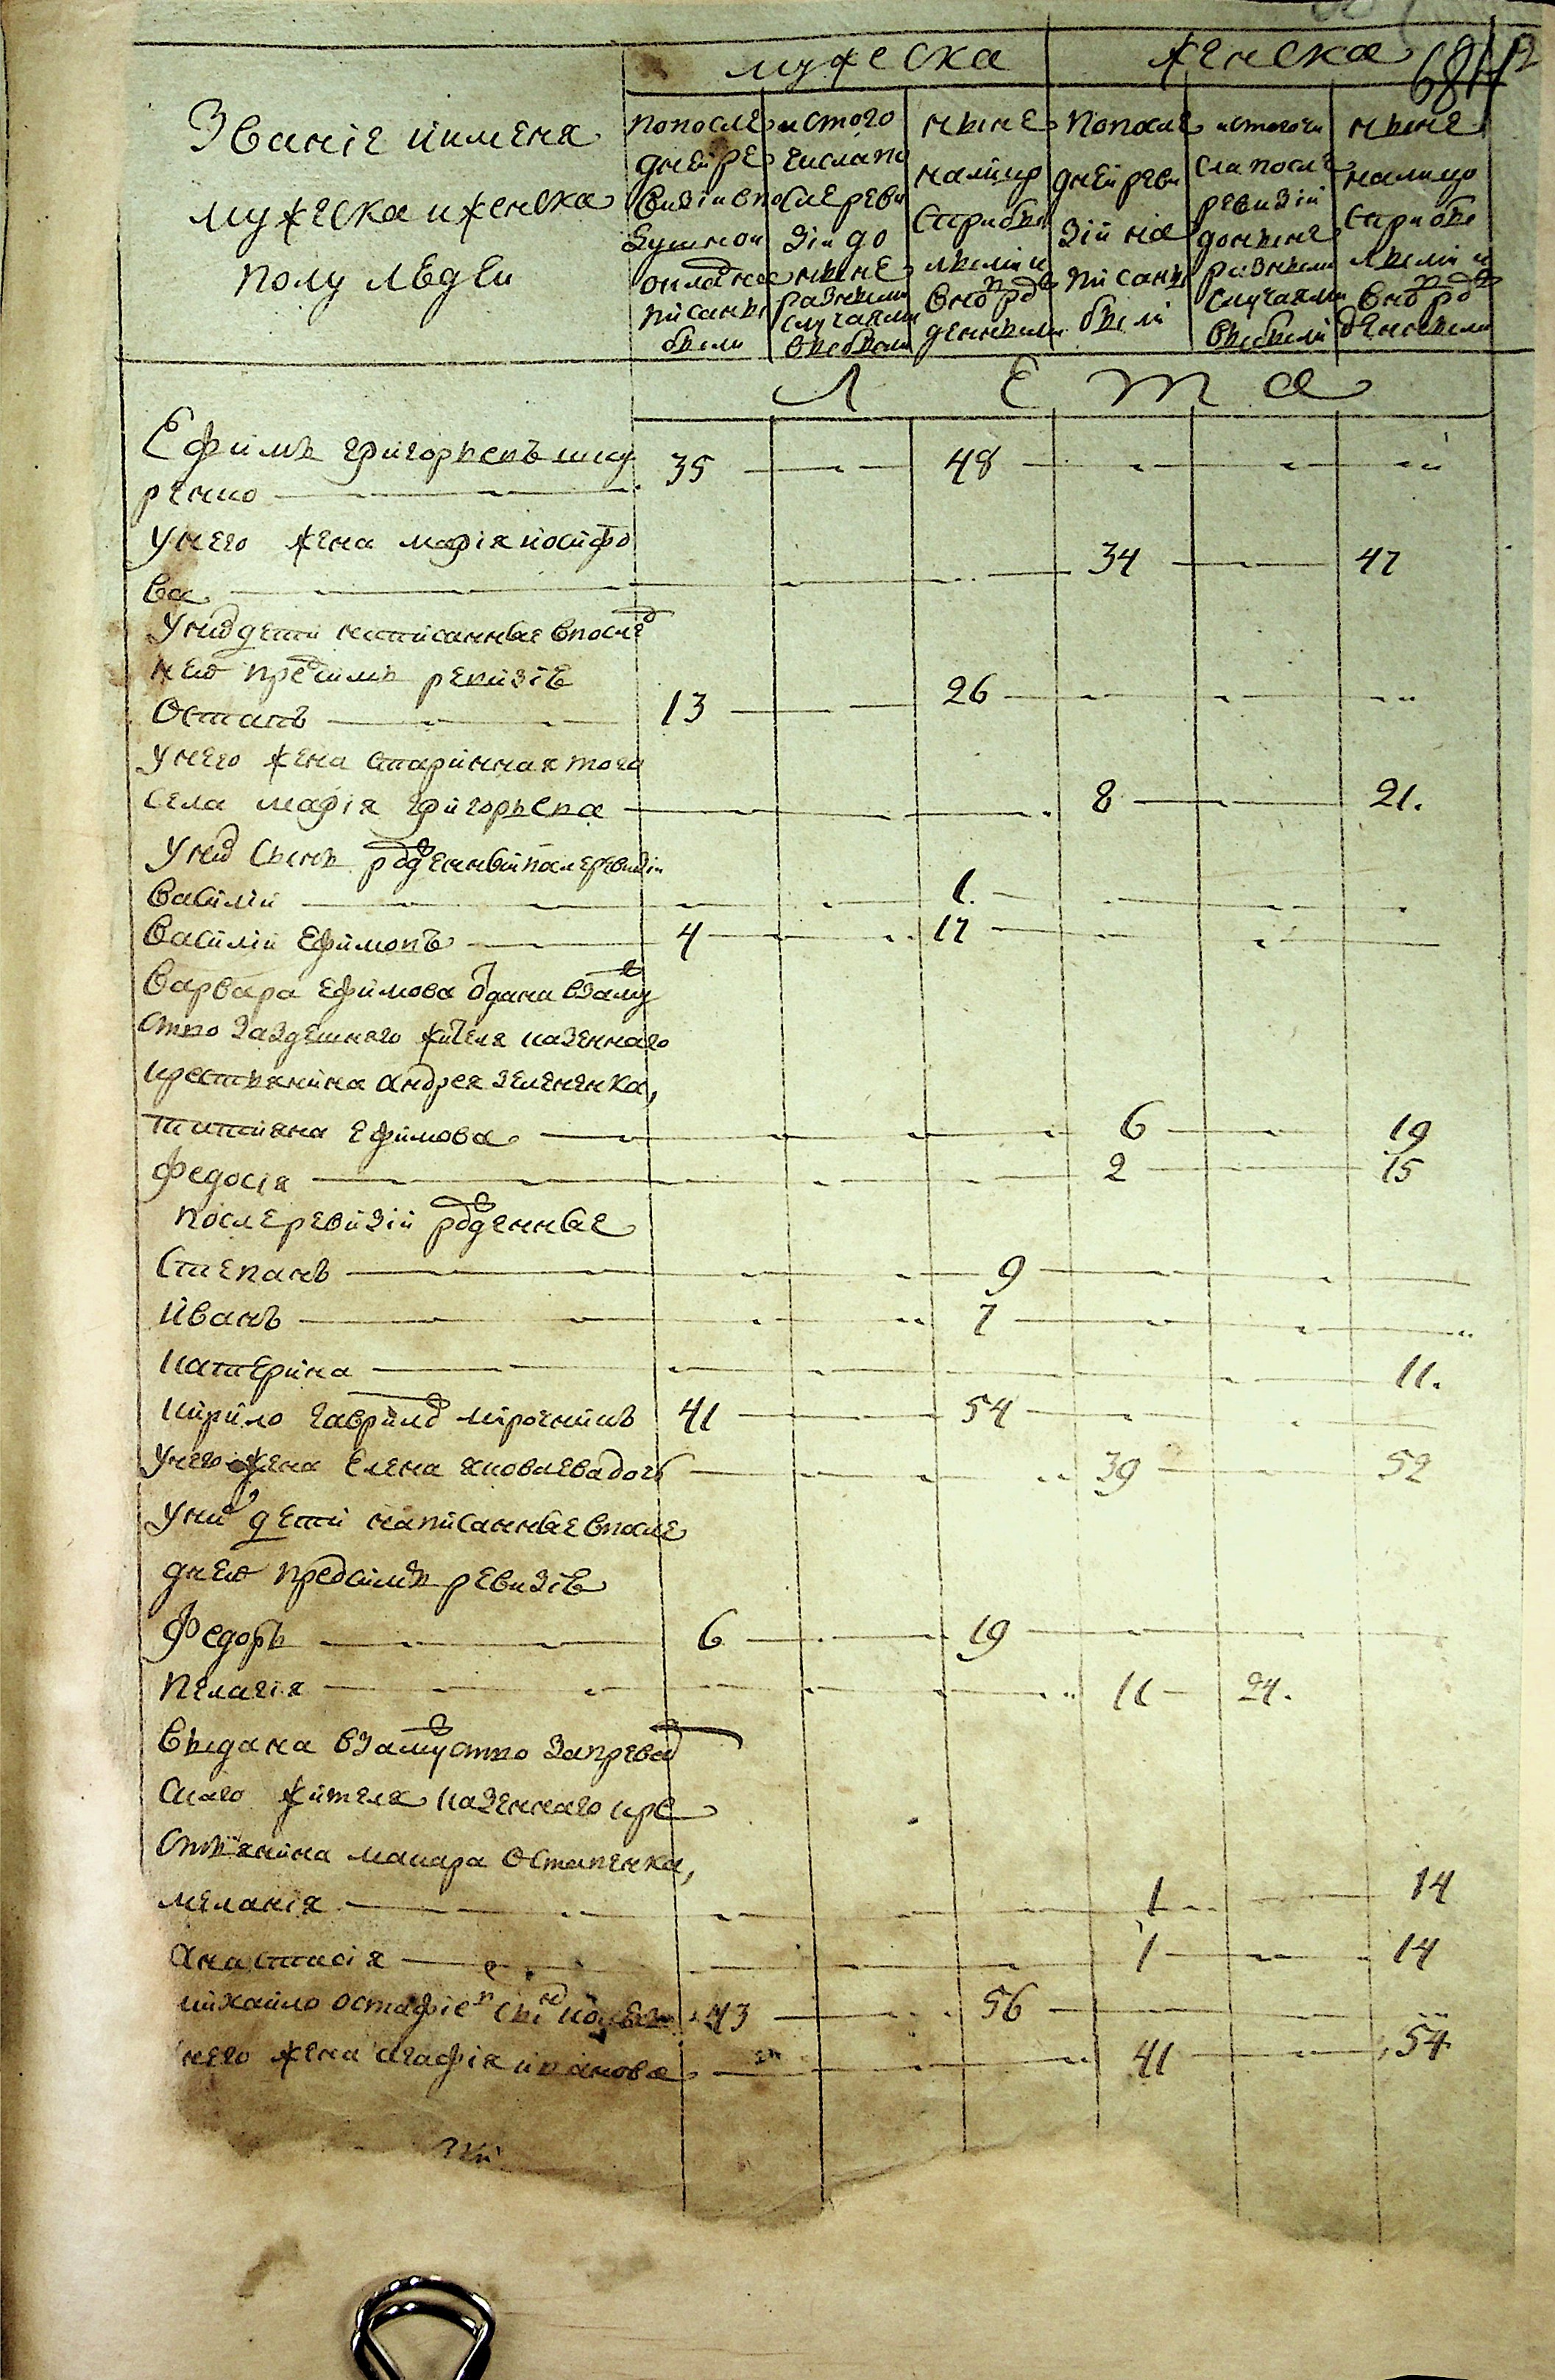 мужеска женска 684
Званіе и имена
мужеска и женска
полу людеи
по после
дней ре
визіи в по
душнои
окладъ на
писаны
были
ис того
числа по
сле реви
зіи до
ныне
разными
случаями
выбыли
ныне
на лицо
с прибы
лыми и
вновь рож
денными
по после
дней реви
зій на
писаны
были
ис того чи
сла после
ревизій
до ныне
разными
случаями
выбыли
ныне
на лицо
с прибы
лыми и
вновь рож
денными
Л е т а
Ефимъ Григорьевъ шку
ренко 35 48
у него жена марія иосифо
ва 34 47
У них дети написанные в послед
ней пред симъ ревизіе
Остапъ 13 26
у него жена старинная того
села марія Григорьева 8 21.
У них сынъ рожденный после ревизіи
василій 1.
василій Ефимовъ 4 17
варвара Ефимова отдана в замуж
ство за здешнего жителя казенного
крестьянина андрея зелененка,
татіяна Ефимова 6 19
федосія 2 15
после ревизій рожденные
Степанъ 9
иванъ 7
катерина 11.
кирило гаврилов мирочникъ 41 54
у него жена Елена яковлева дочь 39 52
у них дети написанные в после
дней пред симъ ревизіе
Федоръ 6 19
пелагія 11 24.
выдана в замужство за
скаго жителя казенного кре
стьянина макара Остапенка,
меланія 1 14
анастасія 1 14
михайло остафіев сын 43 56
него жена агафія иванова 41 54